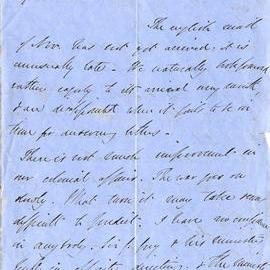 The english mail
of Nov. has not yet arrived; it is
unusually late. We naturally look forward
rather eagerly to its arrival every month,
& are disappointed when it fails to be in
time for answering letters.
There is not much improvement in
our colonial affairs. The war goes on
slowly. What turn it may take seems
difficult to predict. I have no confidence
in anybody. Sir G. Grey & his ministers
in opposite directions, & the